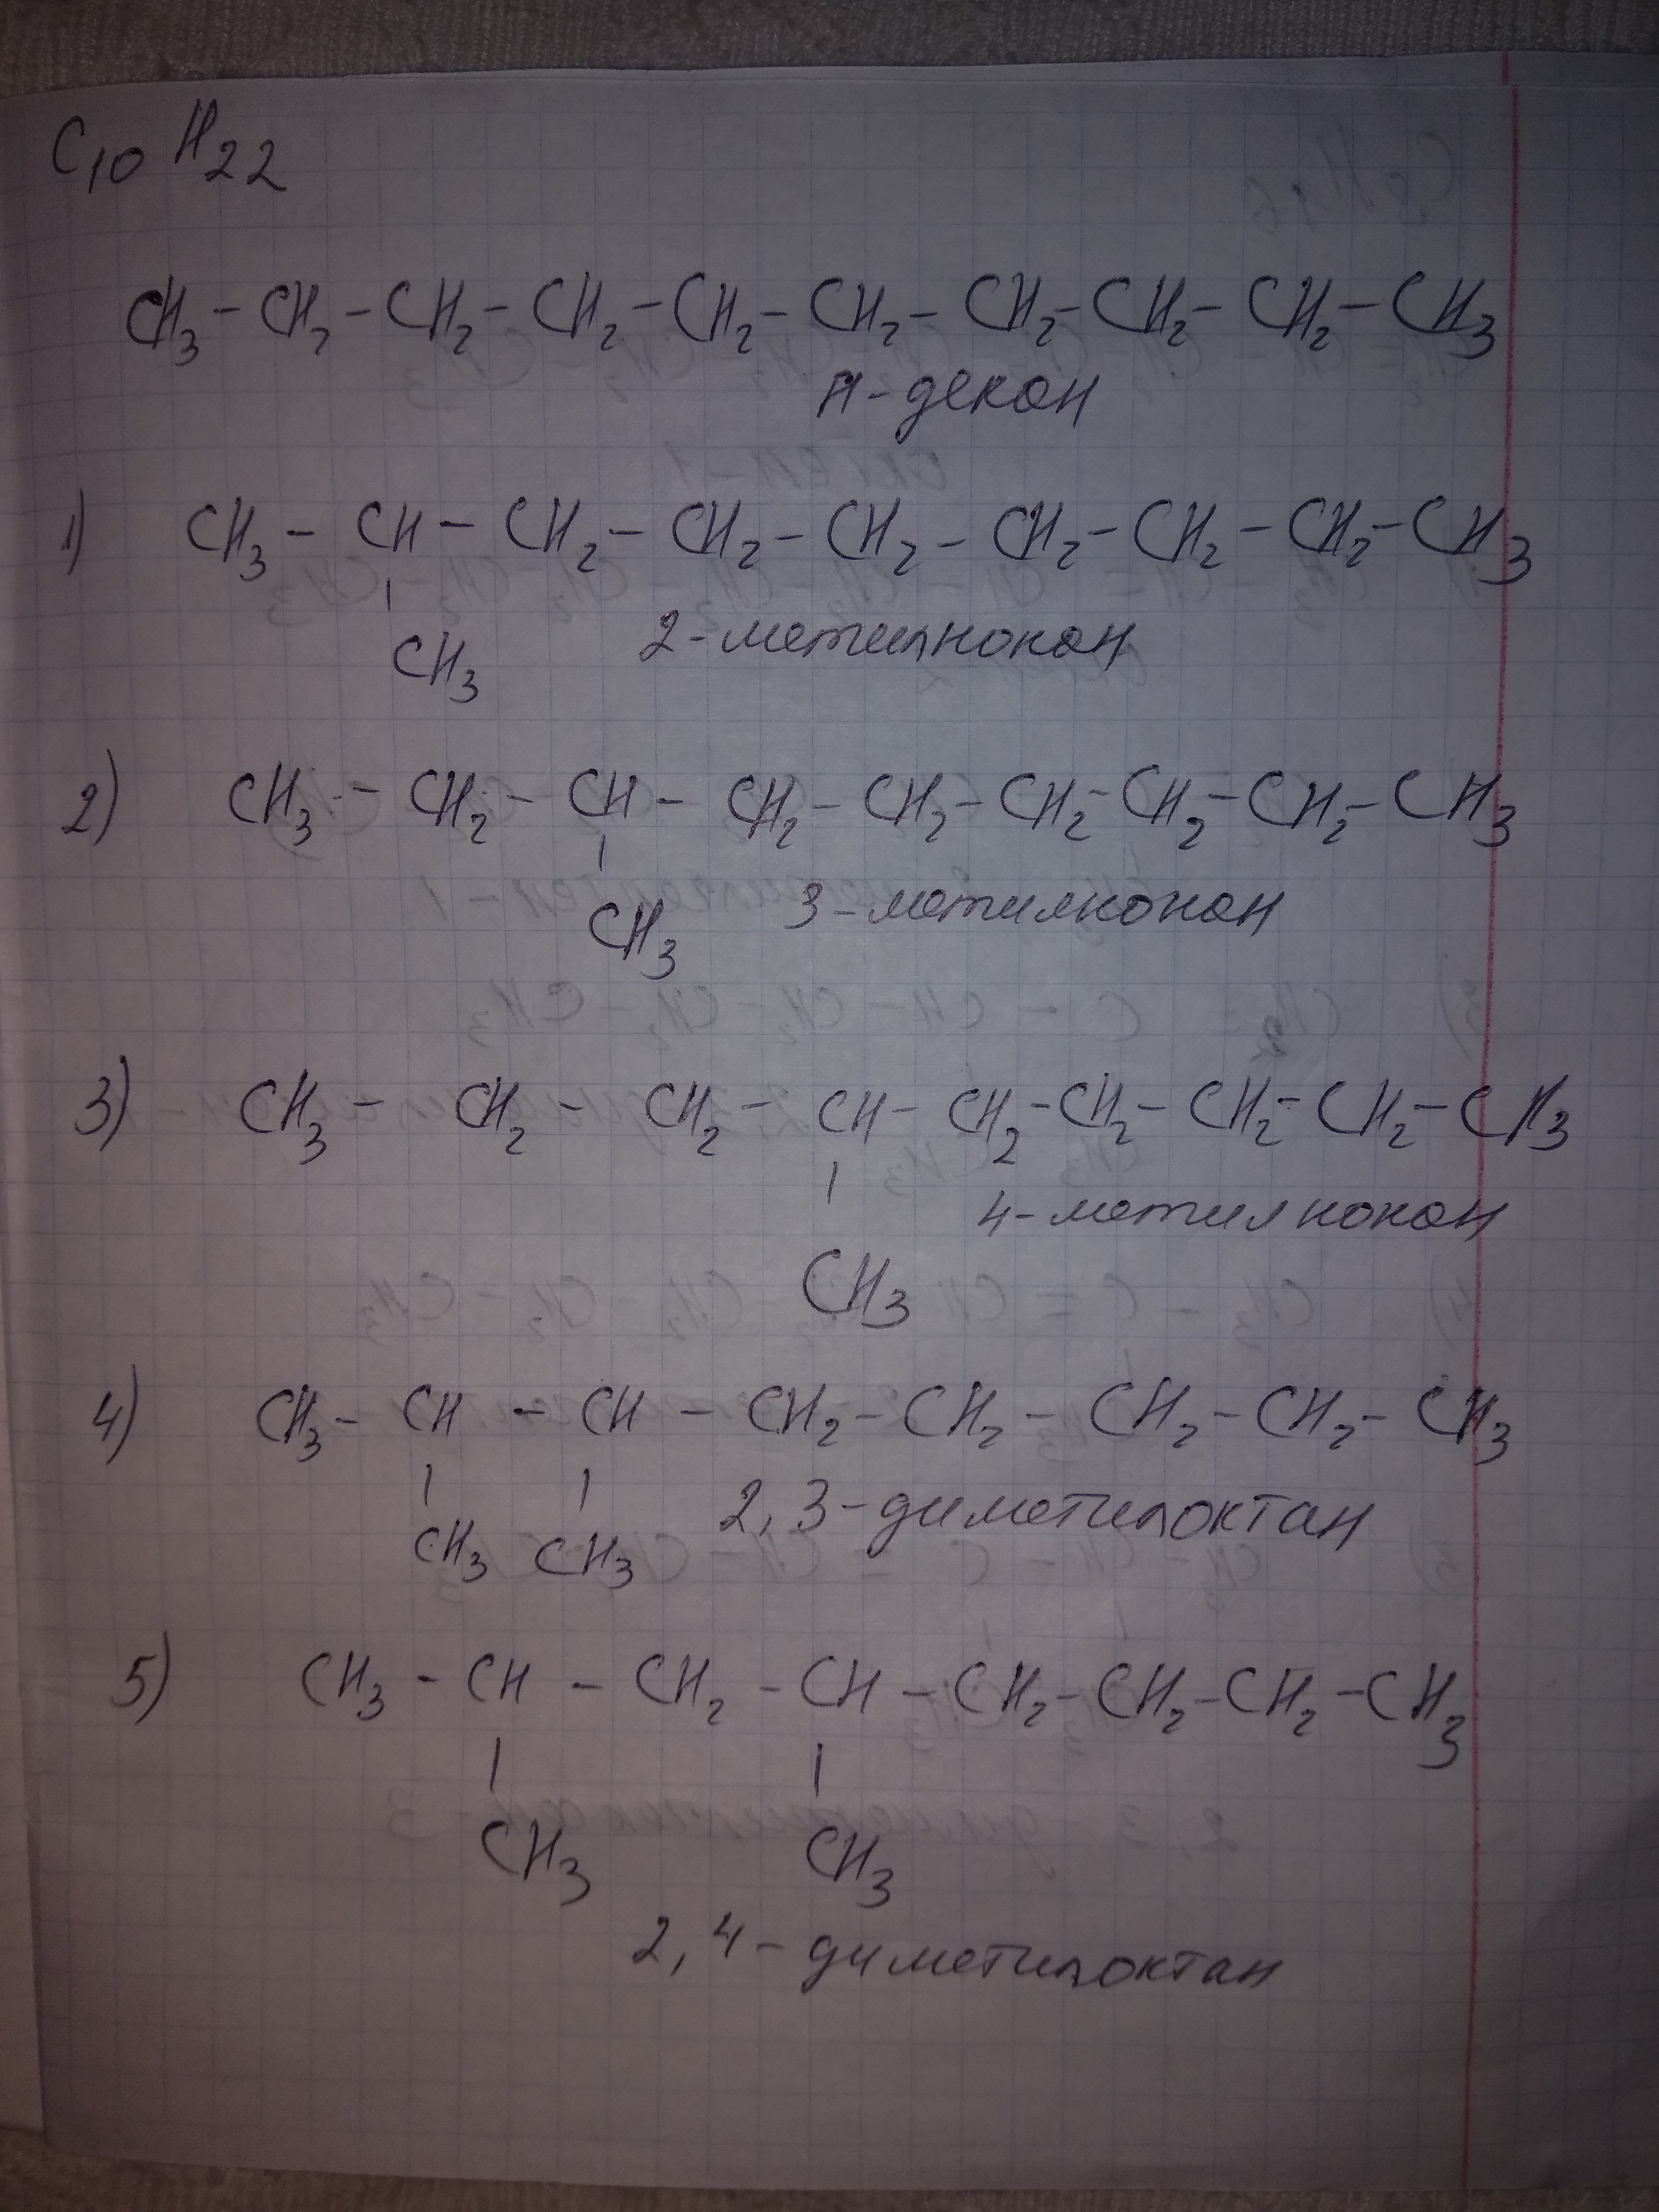 C10H22
CH3 - CH2 - CH2 - CH2 - CH2 - CH2 - CH2 - CH2 - CH2 - CH3
н-декан
1) CH3 - CH - CH2 - CH2 - CH2 - CH2 - CH2 - CH2 - CH3
CH3 2-метилнонан
2) CH3 - CH2 - CH - CH2 - CH2 - CH2 - CH2 - CH2 - CH3
CH3 3-метилнонан
3) CH3 - CH2 - CH2 - CH - CH2 - CH2 - CH2 - CH2 - CH3
4-метилнонан
CH3
4) CH3 - CH - CH - CH2 - CH2 - CH2 - CH2 - CH3
CH3 CH3 2,3-диметилоктан
5) CH3 - CH - CH2 - CH - CH2 - CH2 - CH2 - CH3
CH3 CH3
2,4-диметилоктан